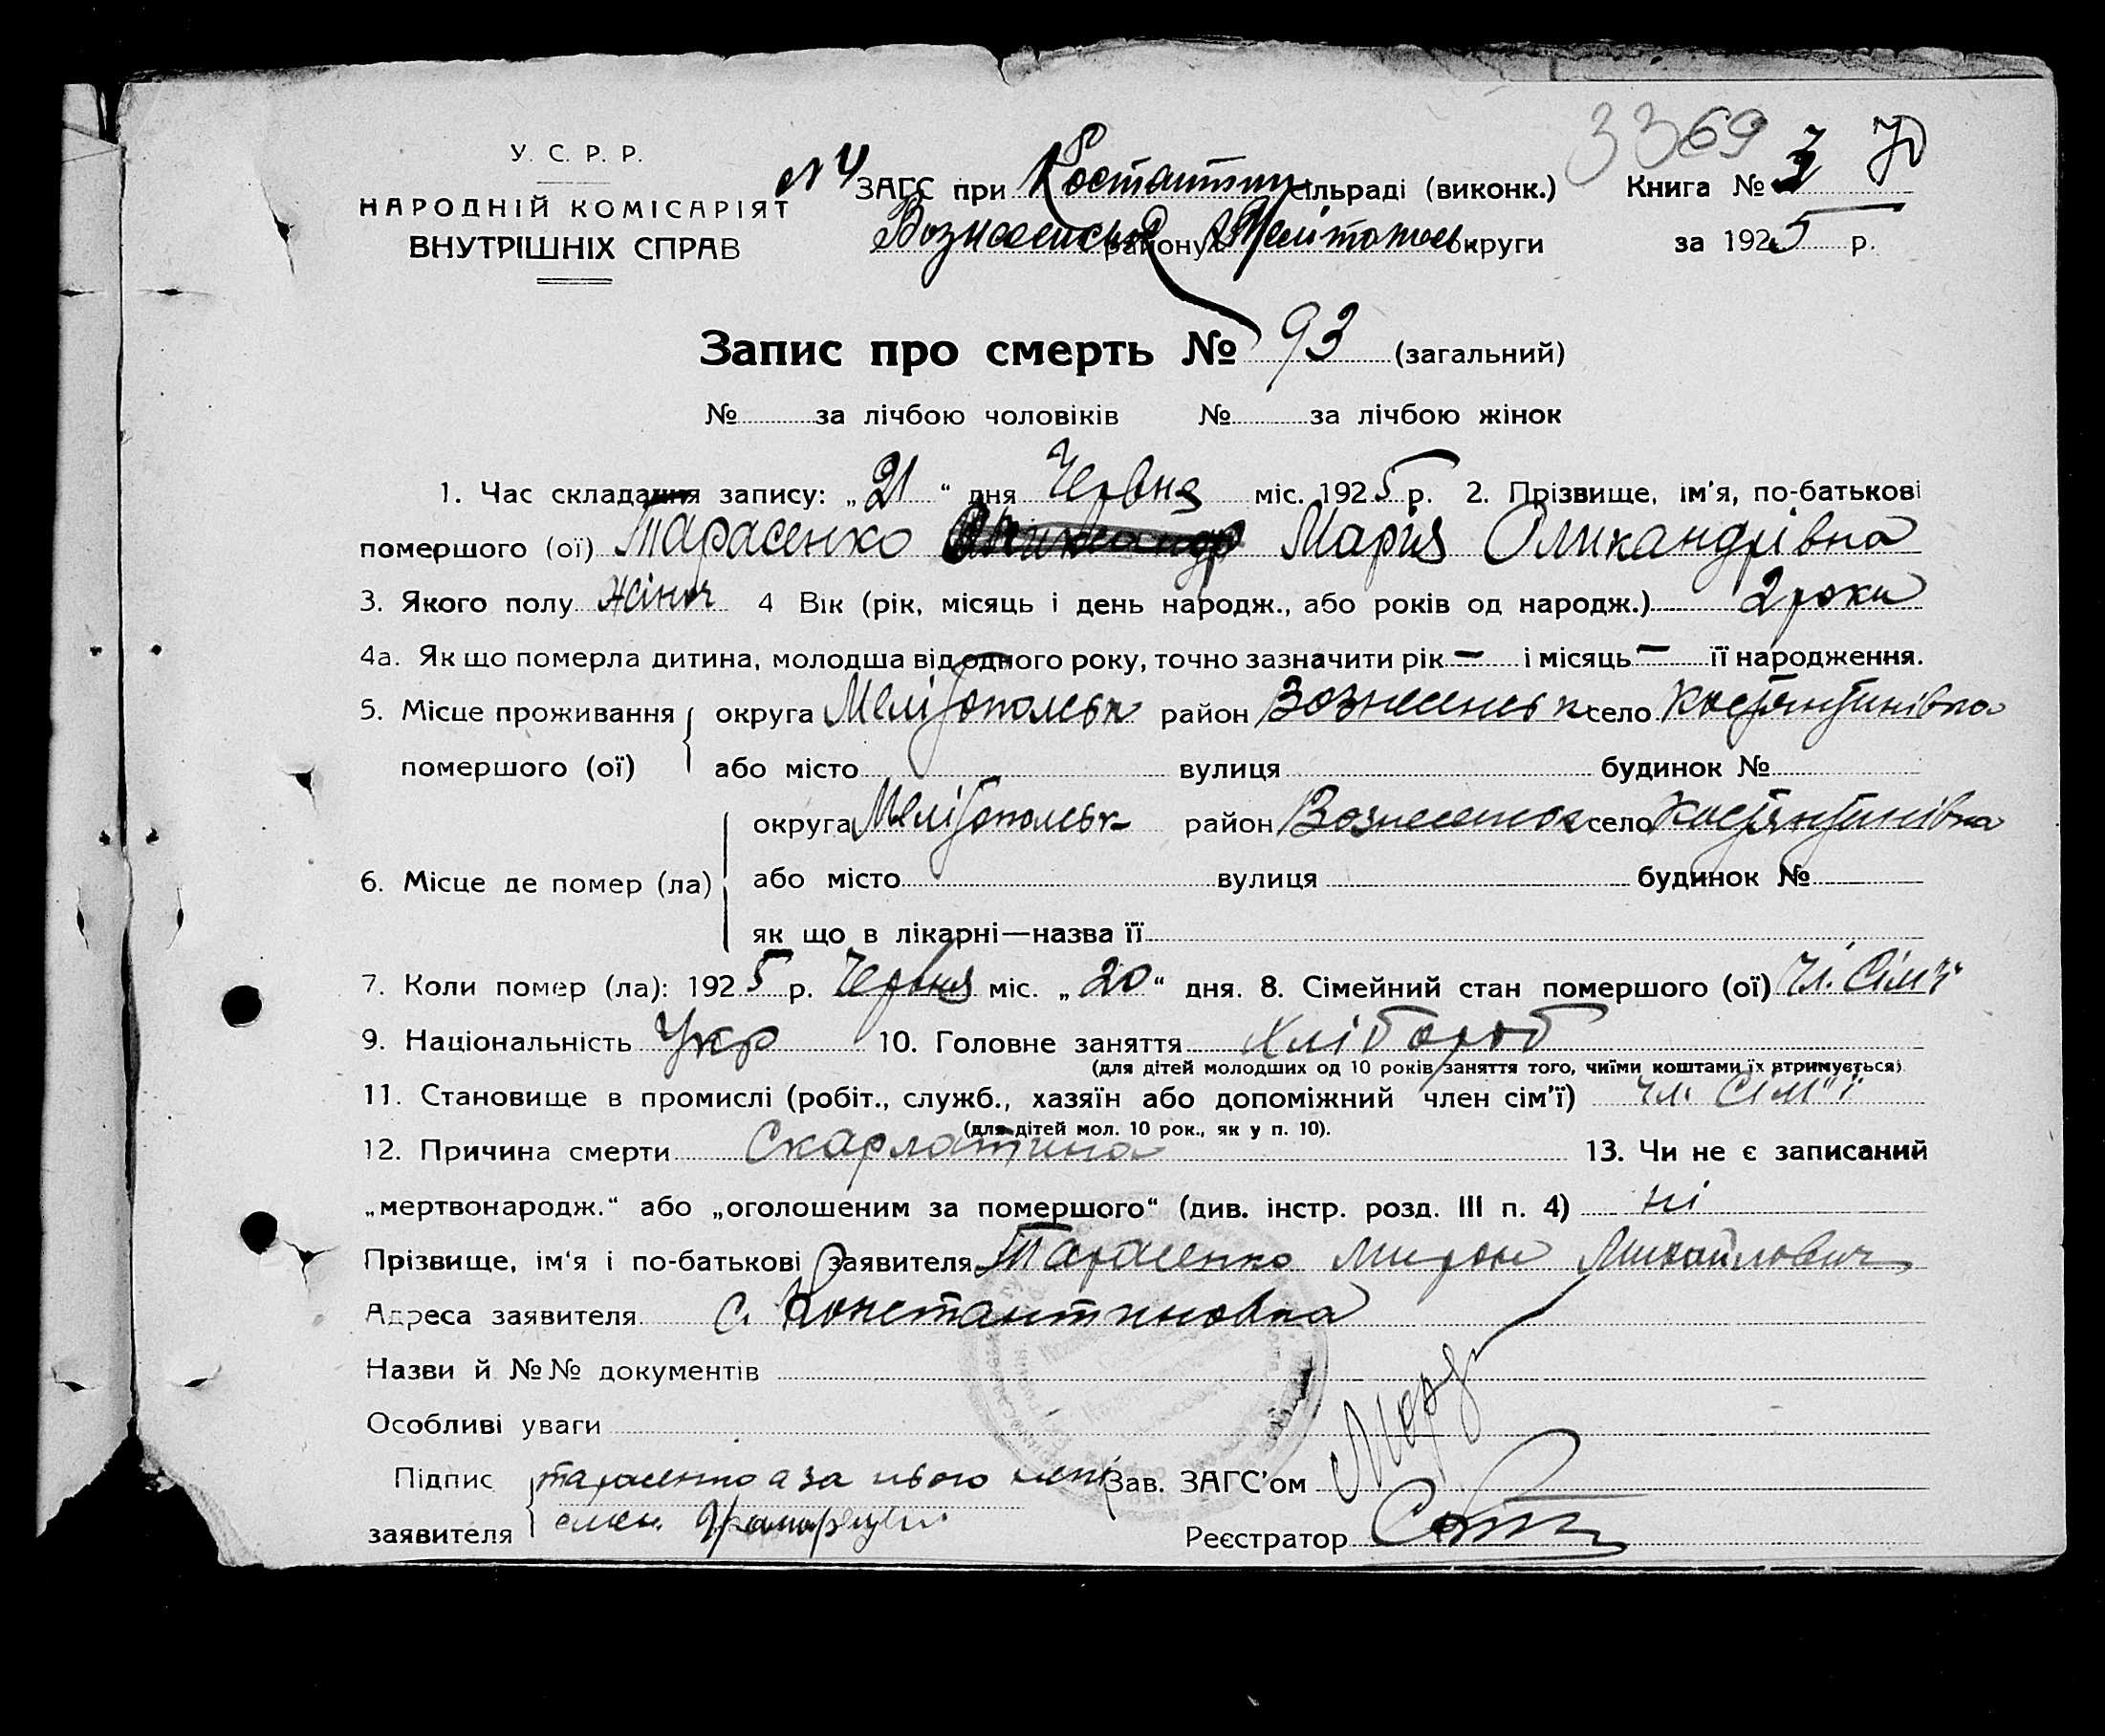 3369 70
У. С. Р. Р.
НАРОДНІЙ КОМІСАРІЯТ
ВНУТРІШНІХ СПРАВ
№ 4 ЗАГС при Костантин сільраді (виконк.) Книга № 3
Вознесенськ району Мелітопольськ округи за 1925 р.
Запис про смерть № 93 (загальний)
№ за лічбою чоловіків № за лічбою жінок
1. Час складання запису: „21“ дня Червня міс. 1925 р. 2. Прізвище, ім'я, по-батькові
помершого (ої) Тарасенко Марія Олиқандрівна
3. Якого полу жіноч 4 Вік (рік, місяць і день народж., або років од народж.) 2 роки
4а. Як що померла дитина, молодша від одного року, точно зазначити рік — і місяць — її народження.
5. Місце проживання округа Мелітопольськ район Вознесенськ село Костянтинівка
помершого (ої) або місто вулиця будинок №
округа Мелітопольськ район Вознесенськ село Костянтинівка
6. Місце де помер (ла) або місто вулиця будинок №
як що в лікарні—назва її
7. Коли помер (ла): 1925 р. Червня міс. „20“ дня. 8. Сімейний стан помершого (ої) чл. Сім'ї
9. Національність Укр 10. Головне заняття Хлібороб
(для дітей молодших од 10 років заняття того, чиїми коштами їх втримується)
11. Становище в промислі (робіт., служб., хазяїн або допоміжний член сім'ї) чл. Сім"ї
(для дітей мол. 10 рок., як у п. 10).
12. Причина смерти Скарлатина 13. Чи не є записаний
„мертвонародж.“ або „оголошеним за помершого“ (див. інстр. розд. III п. 4) ні
Прізвище, ім'я і по-батькові заявителя Тарасенко Мирон Михайлович
Адреса заявителя с. Константиновка
Назви й №№ документів
Особливі уваги
Підпис тарасенко а за нього Зав. ЗАГС'ом
заявителя Реєстратор